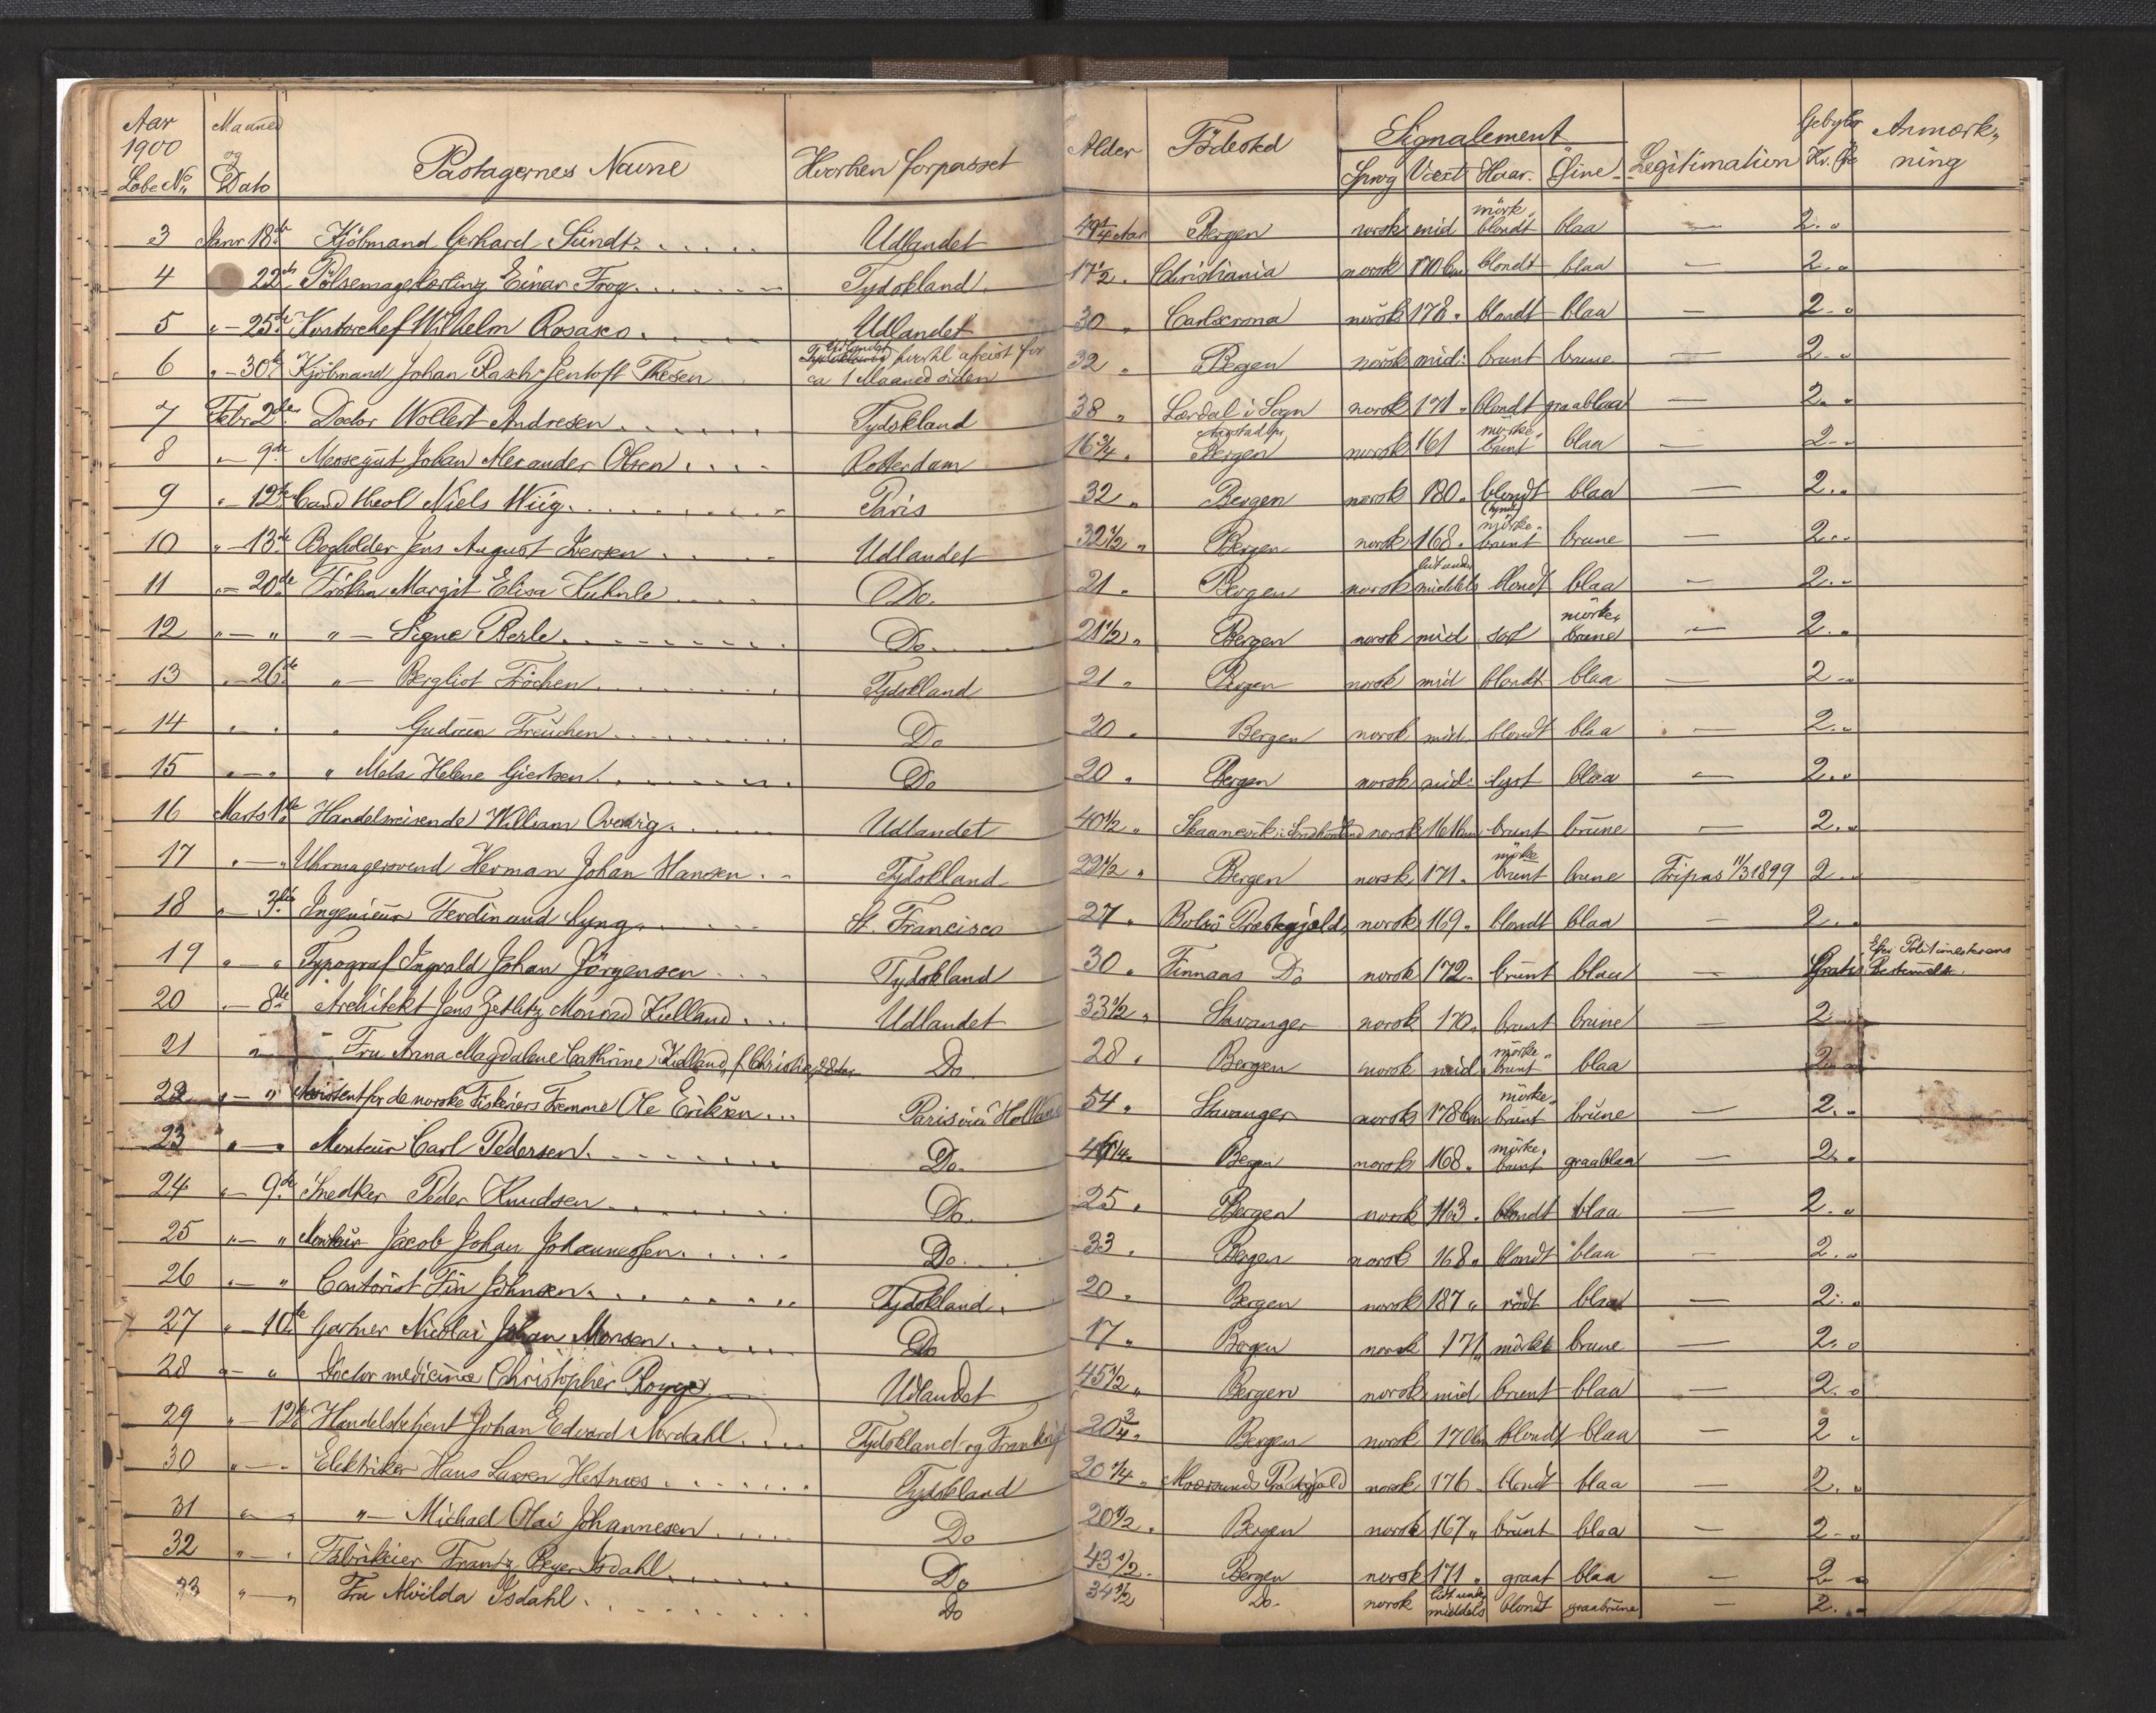 Aar 1900 Løbe No Maaned og Dato Pastagernes Navne Hvorhen forpasset Alder Födested Signalement Sprog Vext Haar. Öine Legitimation Gebyhr Kr. Öre Anmærkning
3 Janr 18de Kjöbmand Gerhard Sundt Udlandet 49 1/4 Aar Bergen norsk mid mörk blondt blaa — 2 "
4 22de Pölsemagerlærling Einar Frog Tydskland 17 1/2 " Christiania norsk 170 Cm blondt blaa — 2 "
5 " — 25de Kontorchef Wilhelm Rosasco Udlandet 30 " Carlscrona norsk 178 " blondt blaa — 2 "
6 " — 30te Kjöbmand Johan Rasch Jentoft Thesen Tydskland Udlandet hvorhl afreist for ca 1 Maaned siden 32 " Bergen norsk mid: brunt brune — 2 "
7 Febr 2den Doctor Wollert Andresen Tydskland 38 " Lærdal i Sogn norsk 171 " blondt graablaa — 2 "
8 " — 9de Messegut Johan Alexander Olsen Rotterdam 16 3/4 " Bergen norsk 161 mörke brunt blaa — 2 "
9 " — 12te Cand theol Niels Wiig Paris 32 " Bergen norsk 180 " blondt (tyndt) blaa — 2 "
10 " — 13de Bogholder Jens August Iversen Udlandet 32 1/2 " Bergen norsk 168 " mörke brunt brune — 2 "
11 " — 20de Fröken Margit Elisa Kuhnle Do. 21 " Bergen norsk lidt under middels blondt blaa — 2 "
12 " — " " — Signe Berle Do. 21 1/2 " Bergen norsk mid sort mörke brune — 2 "
13 " — 26de " — Bergliot Fröchen Tydskland 21 " Bergen norsk mid blondt blaa — 2 "
14 " " " Gudrun Freuchen Do 20 " Bergen norsk mid blondt blaa — 2 "
15 " — " " Meta Helene Giertsen Do 20 " Bergen norsk mid: lyst blaa — 2 "
16 Marts 1ste Handelsreisende William Udlandet 40 1/2 " Skaanevik i norsk 161 Cm brunt brune — 2 "
17 " — " Uhrmagersvend Herman Johan Hansen Tydskland 22 1/2 " Bergen norsk 171 " mörke brunt brune Fripas 11/3 1899 2 "
18 " — 3die Ingenieur Ferdinand Lyng St. Francisco 27 " Bolsö Præstegjeld norsk 169 " blondt blaa — 2 "
19 " — " Typograf Ingvald Johan Jörgensen Tydskland 30 " Finnaas Do norsk 172 " brunt blaa — Gratis Efter Politimesterens Bestemmelse
20 " — 8de Architekt Jens Zetlitz Monrad Kielland Udlandet 33 1/2 " Stavanger norsk 170 " brunt brune — 2 "
21 " Fru Anna Magdalene Cathrine Kielland, f. Christie, 28 Aar Do 28 " Bergen norsk mid " mörke brunt blaa 2 "
22 " — " Assistent for de norske Fiskeriers Fremme Ole Eriksen Paris via Holland 54 " Stavanger norsk 178 Cm mörke brunt brune — 2 "
23 " — " Monteur Carl Pedersen Do. 46 1/4 " Bergen norsk 168 " mörke brunt graablaa — 2 "
24 " — 9de Snedker Peder Knudsen Do. 25 " Bergen norsk 163 " blondt blaa — 2 "
25 " — " Monteur Jacob Johan Johannessen Do. 33 " Bergen norsk 168 " blondt blaa — 2 "
26 " — " Contorist Fin Johnsen Tydskland 20 " Bergen norsk 187 " rödt blaa — 2 "
27 " — 10de Gartner Nicolai Johan Monsen Do 17 " Bergen norsk 171 " mörkt brune — 2 "
28 " — " Doctor medicinæ Christopher Rogge Udlandet 45 1/2 " Bergen norsk mid brunt blaa — 2 "
29 " — 12te Handelsbetjent Johan Edvard Nordahl Tydskland og Frankrig 20 3/4 " Bergen norsk 170 Cm blondt blaa — 2 "
30 " — " Elektriker Hans Larsen Hestnæs Tydskland 20 1/4 " Præstegjeld norsk 176 blondt blaa — 2 "
31 " — " " — Michael Olai Johannesen Do 20 1/2 " Bergen norsk 167 " brunt blaa — 2 "
32 " — " Fabrikeier Frantz Beyer Isdahl Do 43 1/2 " Bergen norsk 171 " graat blaa — 2 "
33 " — " Fru Alvilda Isdahl Do 34 1/2 Do. norsk lidt under middels blondt graabrune — 2 "